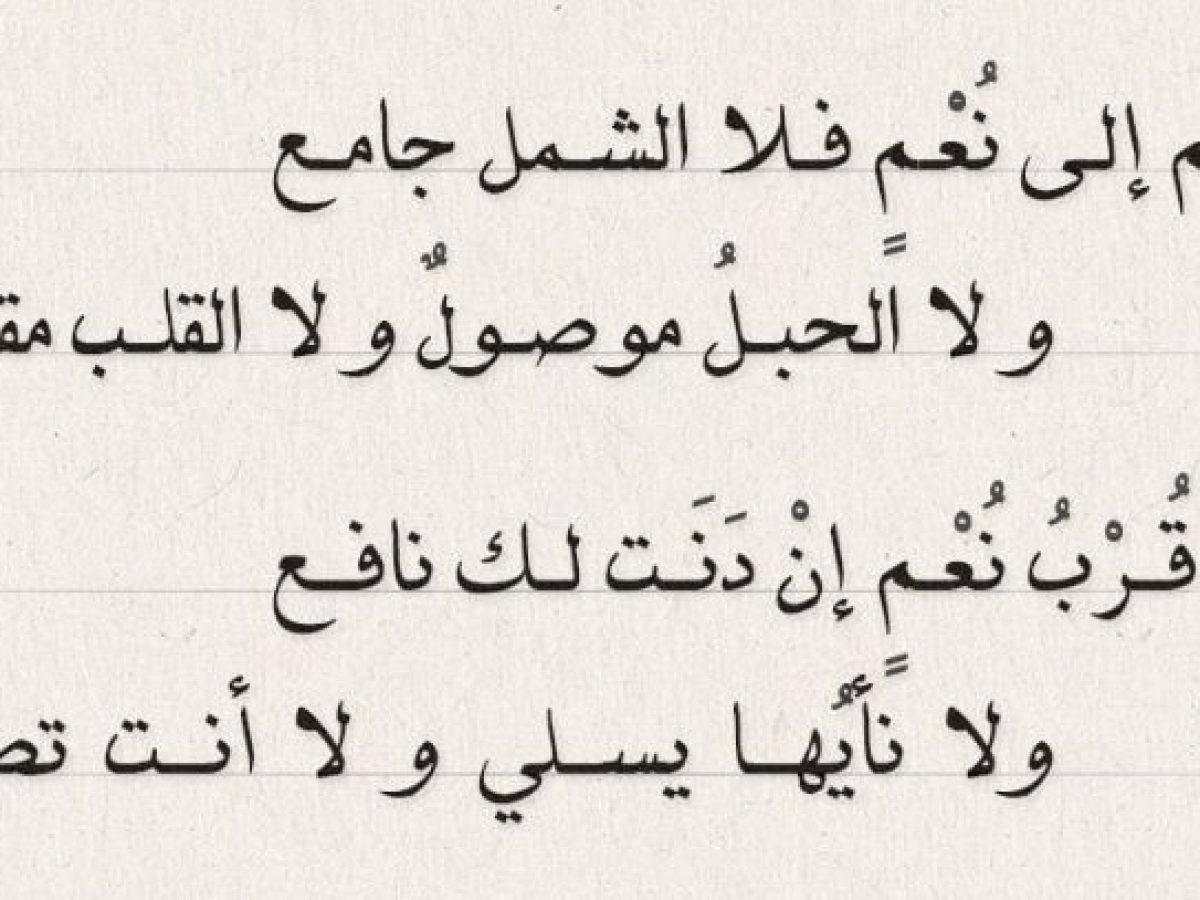 إلى نُعْمٍ فلا الشمل جامع
ولا الحبلُ موصولٌ ولا القلب
قُرْبُ نُعْمٍ إنْ دَنَت لك نافع
ولا نأيُها يسلي ولا أنت